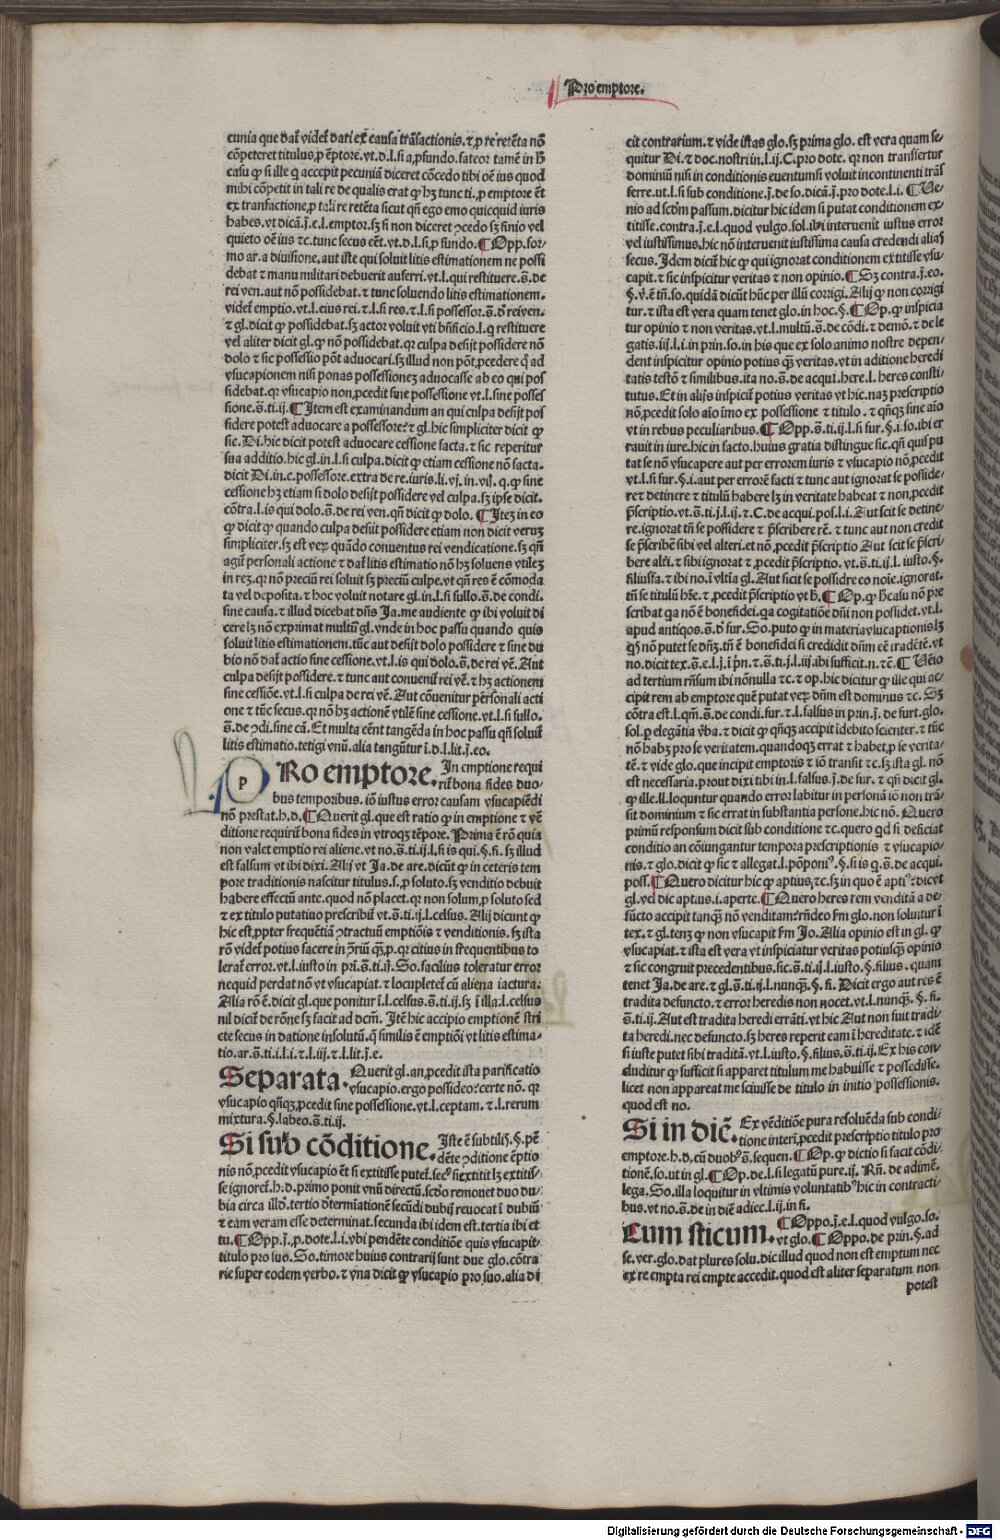 Pro emptore.
cunia que daĩ videt̃ dati ex̃ causa trãsactionis. ⁊ ꝓ re retẽta nõ
cõpeteret titulus ꝓ ẽptore. vt. d. l. si a ꝓfundo. fateor tamẽ in h̃
casu ꝙ si ille q̃ accepit pecuniã diceret cõcedo tibi oẽ ius quod
mihi cõpetit in tali re de qualis erat ꝙ hꝫ tunc ti. ꝓ emptore ẽt
ex transactione ꝓ tali re retẽta sicut qñ ego emo quicquid iuris
habes. vt dicã. j̃. e. l. emptor. sꝫ si non diceret ↄcedo sꝫ finio vel
quieto oẽ ius ⁊c. tunc secus eẽt. vt. d. l. si ꝓ fundo. ¶ Opp. for-
mo ar. a diuisione. aut iste qui soluit litis estimationem ne possi
debat ⁊ manu militari debuerit auferri. vt. l. qui restituere. s̃. de
rei ven. aut nõ possidebat. ⁊ tunc soluendo litis estimationem.
videt̃ emptio. vt. l. eius rei. ⁊. l. si res. ⁊. l. si possessor. s̃. d̃ rei ven.
⁊ gl. dicit ꝙ possidebat. sꝫ actor voluit vti bñficio. l. q̃ restituere
vel aliter dicit gl. ꝙ nõ possidebat. qꝛ culpa desijt possidere nõ
dolo ⁊ sic possessio põt aduocari. sꝫ illud non põt ꝓcedere q̃ ad
vsucapionem nisi ponas possessionẽ aduocasse ab eo qui pos
sidebat. qꝛ vsucapio non ꝓcedit sine possessione vt. l. sine posses
sione. s̃. ti. ij. ¶ Item est examinandum an qui culpa desijt pos
sidere potest aduocare a possessore? ⁊ gl. hic simpliciter dicit ꝙ
sic. Di. hic dicit potest aduocare cessione facta. ⁊ sic reperitur
sua additio. hic gl. in. l. si culpa. dicit ꝙ etiam cessione nõ facta.
dicit Di. in. c. possessore. extra de re. iuris. li. vj. in. vij. q. ꝙ sine
cessione hꝫ etiam si dolo desijt possidere vel culpa. sꝫ ipse dicit.
cõtra. l. is qui dolo. s̃. de rei ven. qñ dicit ꝙ dolo. ¶ Itez in eo
ꝙ dicit ꝙ quando culpa desiit possidere etiam non dicit verum
simpliciter. sꝫ est veꝝ quãdo conuentus rei vendicatione. sꝫ qñ
agit̃ personali actione ⁊ dat̃ litis estimatio nõ hꝫ soluens vtileꝫ
in reꝫ. qꝛ nõ preciũ rei soluit sꝫ preciũ culpe. vt qñ res ẽ cõmoda
ta vel deposita. ⁊ hoc voluit notare gl. in. l. si fullo. s̃. de condi.
sine causa. ⁊ illud dicebat dñs Ja. me audiente ꝙ ibi voluit di
cere lꝫ non exprimat multũ gl. vnde in hoc passu quando quis
soluit litis estimationem. tũc aut desijt dolo possidere ⁊ sine du
bio nõ dat̃ actio sine cessione. vt. l. is qui dolo. s̃. de rei vẽ. Aut
culpa desijt possidere. ⁊ tunc aut conuenit̃ rei vẽ. ⁊ hꝫ actionem
sine cessiõe. vt. l. si culpa de rei vẽ. Aut cõuenitur personali acti
one ⁊ tũc secus. qꝛ nõ hꝫ actionẽ vtilẽ sine cessione. vt. l. si fullo.
s̃. de ↄdi. sine cã. Et multa eẽnt tangẽda in hoc passu qñ soluit̃
litis estimatio. tetigi vnũ. alia tangũtur ĩ. d. l. lit. j̃. eo.
p
Ro emptore. In emptione requi
rit̃ bona fides duo-
bus temporibus. iõ iustus error causam vsucapiẽdi
nõ prestat. h. d. ¶ Querit gl. que est ratio ꝙ in emptione ⁊ vẽ
ditione requirit̃ bona fides in vtroqꝫ tẽpore. Prima ẽ rõ quia
non valet emptio rei aliene. vt no. s̃. ti. ij. l. si is qui. §. fi. sꝫ illud
est falsum vt ibi dixi. Alij vt Ja. de are. dicũt ꝙ in ceteris tem
pore traditionis nascitur titulus. s. ꝓ soluto. sꝫ venditio debuit
habere effectũ ante. quod nõ placet. qꝛ non solum ꝓ soluto sed
⁊ ex titulo putatiuo prescribit̃ vt. s̃. ti. ij. l. celsus. Alij dicunt ꝙ
hic est ꝓpter frequẽtiã ↄtractuũ emptiõis ⁊ venditionis. sꝫ ista
rõ videt̃ potius facere in ↄ̃riũ qꝫ ꝓ. qꝛ citius in frequentibus to
lerat̃ error. vt. l. iusto in pri. s̃. ti. ij. So. facilius toleratur error
nequid perdat nõ vt vsucapiat. ⁊ locupletet̃ cũ aliena iactura.
Alia rõ ẽ. dicit gl. que ponitur ĩ. l. celsus. s̃. ti. ij. sꝫ ĩ illa. l. celsus
nil dicit̃ de rõne sꝫ facit ad dcm̃. Itẽ hic accipio emptionẽ stri
cte secus in datione insolutũ. q̃ similis ẽ emptiõi vt litis estima-
tio. ar. s̃. ti. i. l. i. ⁊. l. iij. ⁊. l. lit. j̃. e.
Separata. Querit gl. an ꝓcedit ista parificatio
vsucapio. ergo possideo: certe nõ. qꝛ
vsucapio qñqꝫ ꝓcedit sine possessione. vt. l. ceptam. ⁊. l. rerum
mixtura. §. labeo. s̃. ti. ij.
Si sub cõditione. Iste ẽ subtilis. §. pẽ
dẽte ↄditione ẽptio
nis nõ ꝓcedit vsucapio ẽt si extitisse putet̃. secꝰ si extitit lꝫ extitis-
se ignoret̃. h. d. primo ponit vnũ directũ. scdo remouet duo du-
bia circa illđ. tertio d̃terminationẽ secũdi dubij reuocat ĩ dubiũ
⁊ eam veram esse determinat. secunda ibi idem est. tertia ibi et
tu. ¶ Opp. j̃. ꝓ. dote. l. i. vbi pendẽte conditiõe quis vsucapit
titulo pro suo. So. timore huius contrarij sunt due glo. cõtra
rie super eodem verbo. ⁊ vna dicit ꝙ vsucapio pro suo. alia di
cit contrarium. ⁊ vide istas glo. sꝫ prima glo. est vera quam se-
quitur Di. ⁊ doc. nostri in. l. ij. C. pro dote. qꝛ non transfertur
dominiũ nisi in conditionis euentum si voluit incontinenti trãs
ferre. vt. l. si sub conditione. j̃. de so. dicã. j̃. pro dote. l. i. ¶ Ve-
nio ad scdm passum. dicitur hic idem si putat conditionem ex-
titisse. contra. j̃. e. l. quod vulgo. sol. ibi interuenit iustus error
vel iustissimus. hic nõ interuenit iustissima causa credendi aliaſ
secus. Idem dicit̃ hic ꝙ qui ignorat conditionem extitisse vsu
capit. ⁊ sic inspicitur veritas ⁊ non opinio. ¶ Sꝫ contra. j̃. eo.
§. v̓. ẽ tñ. so. quidã dicũt hũc per illũ corrigi. Alij ꝙ non corrigi
tur. ⁊ ista est vera quam tenet glo. in hoc. §. ¶ Op. ꝙ inspicia
tur opinio ⁊ non veritas. vt. l. multũ. s̃. de cõdi. ⁊ demõ. ⁊ de le
gatis. iij. l. i. in prin. so. in his que ex solo animo nostre depen-
dent inspicitur opinio potius qꝫ veritas. vt in aditione heredi
tatis testõ ⁊ similibus. ita no. s̃. de acqui. here. l. heres consti-
tutus. Et in alijs inspicit̃ potius veritas vt hic. nam prescriptio
nõ ꝓcedit solo aĩo ĩmo ex possessione ⁊ titulo. ⁊ qñqꝫ sine aĩo
vt in rebus peculiaribus. ¶ Opp. s̃. ti. ij. l. si fur. §. i. so. ibi er
rauit in iure. hic in facto. huius gratia distingue sic. qñ quis pu
tat se nõ vsucapere aut per errorem iuris ⁊ vsucapio nõ ꝓcedit
vt. l. si fur. §. i. aut per errorẽ facti ⁊ tunc aut ignorat se posside-
re ⁊ detinere ⁊ titulũ habere lꝫ in veritate habeat ⁊ non ꝓcedit
p̃scriptio. vt. s̃. ti. j. l. ij. ⁊. C. de acqui. pos. l. i. Aut scit se detine-
re. ignorat tñ se possidere ⁊ p̃scribere rẽ. ⁊ tunc aut non credit
se p̃scribẽ sibi vel alteri. et nõ ꝓcedit p̃scriptio Aut scit se p̃scri
bere alt̃i. ⁊ sibi ignorat ⁊ ꝓcedit p̃scriptio. vt. s̃. ti. ij. l. iusto. §.
filiusfa. ⁊ ibi no. ĩ vltĩa gl. Aut scit se possidẽe eo noĩe. ignorat.
tñ se titulũ hr̃e. ⁊ ꝓcedit p̃scriptio vt h̃. ¶ Op. ꝙ h̃ casu nõ p̃re
scribat qa nõ ẽ bonefidei. qa cogitatiõe dñi non possidet. vt. l.
apud antiqos. s̃. d̃ fur. So. puto ꝙ in materia vsucaptionis lꝫ
qs̃ nõ putet se dñꝫ. tñ ẽ bonefidei si credidit dñm eẽ tradẽtẽ. vt
no. dicit tex. s̃. e. l. j. ĩ p̃n. ⁊. s̃. ti. j. l. iij. ibi sufficit. n. ⁊c. ¶ Veĩo
ad tertium rñsum ibi nõnulla ⁊c. ⁊ op. hic dicitur ꝙ ille qui ac-
cipit rem ab emptore quẽ putat veꝝ dñm est dominus ⁊c. Sꝫ
cõtra est. l. qm̃. s̃. de condi. fur. ⁊. l. falsus in prin. j̃. de furt. glo.
sol. ꝑ elegãtia v̓ba. ⁊ dicit ꝙ qñqꝫ accipit ĩdebito scienter. ⁊ tũc
nõ habꝫ pro se veritatem. quandoqꝫ errat ⁊ habet ꝓ se verita-
tẽ. ⁊ vide glo. que incipit emptoris ⁊ iõ transit ⁊c. sꝫ ista gl. nõ
est necessaria. prout dixi tibi in. l. falsus. j̃. de fur. ⁊ qñ dicit gl.
ꝙ ille. ll. loquntur quando error labitur in personã iõ non trã-
sit dominium ⁊ sic errat in substantia persone. hic nõ. Quero
primũ responsum dicit sub conditione ⁊c. quero qd si deficiat
conditio an cõiungantur tempora prescriptionis ⁊ vsucapio-
nis. ⁊ glo. dicit ꝙ sic ⁊ allegat. l. põponiꝰ. §. si is q̃. s̃. de acqui.
poss. ¶ Quero dicitur hic ꝙ aptius ⁊c. sꝫ in quo ẽ aptiꝰ: dic vt
gl. vel dic aptius. i. aperte. ¶ Quero heres rem venditã a de-
fũcto accipit tanqꝫ nõ venditam: rñdeo scdm glo. non soluitur ĩ
tex. ⁊ gl. tenꝫ ꝙ non vsucapit scdm Jo. Alia opinio est in gl. ꝙ
vsucapiat. ⁊ ista est vera vt inspiciatur veritas potiusqꝫ opinio
⁊ sic congruit precedentibus. sic. s̃. ti. ij. l. iusto. §. filius. quam
tenet Ja. de are. ⁊ gl. s̃. ti. ij. l. nunqꝫ. §. fi. Dicit ergo aut res ẽ
tradita defuncto. ⁊ error heredis non nocet. vt. l. nunqꝫ. §. fi.
s̃. ti. ij. Aut est tradita heredi errãti. vt hic Aut non fuit tradi-
ta heredi. nec defuncto. sꝫ heres reperit eam ĩ hereditate. ⁊ idẽ
si iuste putet sibi traditã. vt. l. iusto. §. filius. s̃. ti. ij. Ex his con-
cluditur ꝙ sufficit si apparet titulum me habuisse ⁊ possedisse.
licet non appareat me sciuisse de titulo in initio possessionis.
quod est no.
Si in diẽ. Ex vẽditiõe pura resoluẽda sub condi-
tione interĩ ꝓcedit prescriptio titulo pro
emptore. h. d. cũ duobꝰ. s̃. sequen. ¶ Op. ꝙ dictio si facit cõdi-
tionẽ. so. vt in gl. ¶ Op. de. l. si legatũ pure. ij. Rñ. de adimẽ.
lega. So. illa loquitur in vltimis voluntatibꝰ hic in contracti-
bus. vt no. s̃. de in diẽ adiec. l. ij. in fi.
Cum sticum. ¶ Oppo. j̃. e. l. quod vulgo. so.
vt glo. ¶ Oppo. de prin. §. ad
se. ver. glo. dat plures solu. dic illud quod non est emptum nec
ex re empta rei empte accedit. quod est aliter separatum non
potest
Digitalisierung gefördert durch die Deutsche Forschungsgemeinschaft - DFG